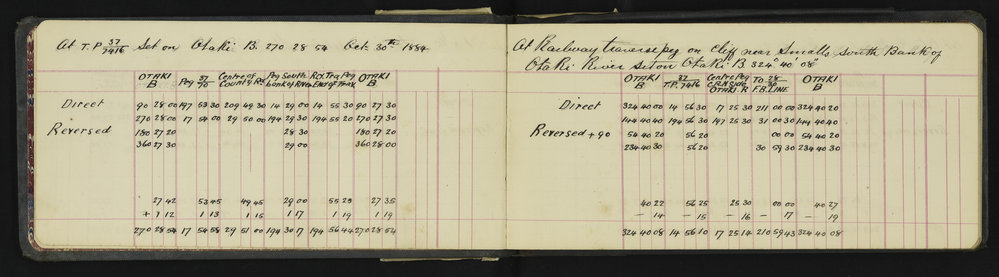 At T.P 37/7416 Set on Otaki B. 270 28 54 Oct. 30th 1884
OTAKI B Peg 37/70 Centre of County Rd Peg South bank of River Rly Trq Peg End of Track OTAKI B
Direct 90 28 00 197 53 30 209 49 30 14 29 00 14 55 30 90 27 30
270 28 00 17 54 00 29 50 00 194 29 30 194 55 20 270 27 30
Reversed 180 27 20 28 30 180 27 20
360 27 30 29 00 360 28 00
27 42 53 45 49 45 29 00 55 25 27 35
+ 1 12 1 13 1 15 1 17 1 19 1 19
270 28 54 17 54 58 29 51 00 194 30 17 194 56 44 270 28 54
At Railway traverse peg on cliff near Smalls south Bank of
Otaki River set on Otaki B 324° 40' 08"
OTAKI B 37 T.P. 7416 Centre Peg OTAKI R To 28/30 F.B. LINE OTAKI B
Direct 324 40 00 14 56 30 17 25 30 211 00 00 324 40 20
144 40 40 194 56 30 197 25 30 31 00 30 144 40 40
Reversed + 90 54 40 20 56 20 00 00 54 40 20
234 40 30 56 20 30 59 30 234 40 30
40 22 56 25 25 30 00 00 40 27
— 14 — 15 — 16 — 17 — 19
324 40 08 14 56 10 17 25 14 210 59 43 324 40 08